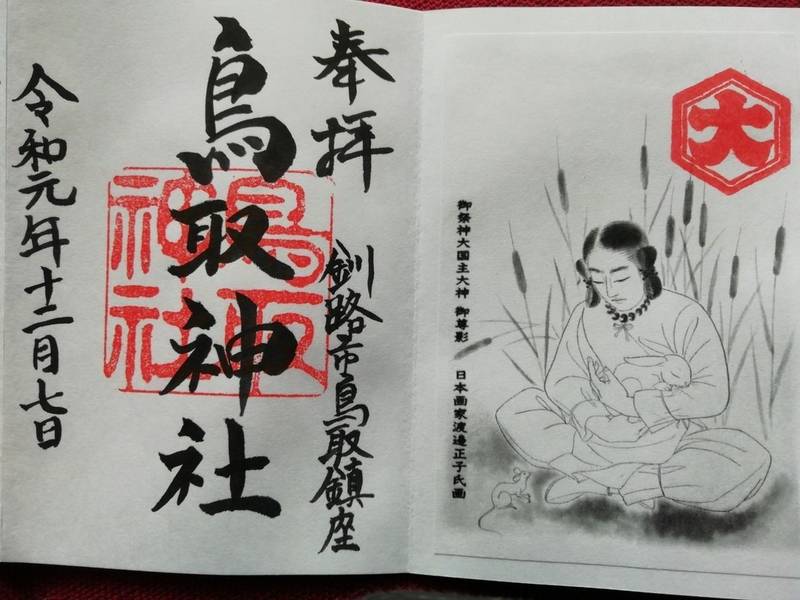 大
御祭神大国主大神 御尊影 日本画家渡邊正子氏画
奉拝
釧路市鳥取鎮座
鳥取神社
鳥取神社
令和元年十二月七日